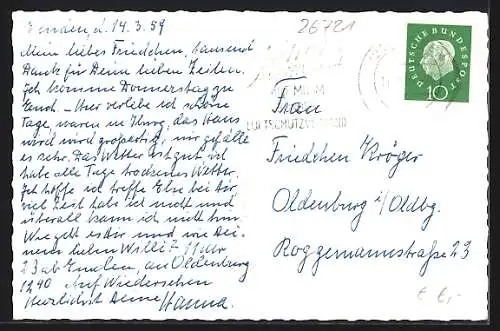 Emden, d. 14.3.59
Mein liebes Friedchen, tausend
Dank für Deine lieben Zeilen.
Ich komme Donnerstag zu
Euch. – Hier verlebe ich schöne
Tage, waren in das Haus
wird wird großartig, mir gefällt
es sehr. Das Wetter ist gut, ich
habe alle Tage trockenes Wetter.
Ich hoffe ich treffe Else bei Dir,
viel Zeit habe ich nicht und
überall kann ich nicht hin.
Wie geht es Dir und wie Dei-
nem lieben Willi? 11 Uhr
23 ab Emden, an Oldenburg
1240 Auf Wiedersehen
Herzlichst Deine Hanna.
26721
DEUTSCHE BUNDESPOST
10
LUFTSCHUTZVERBAND
Frau
Friedchen Kröger
Oldenburg i/Oldbg.
Roggemannstraße 23
€ 6,-